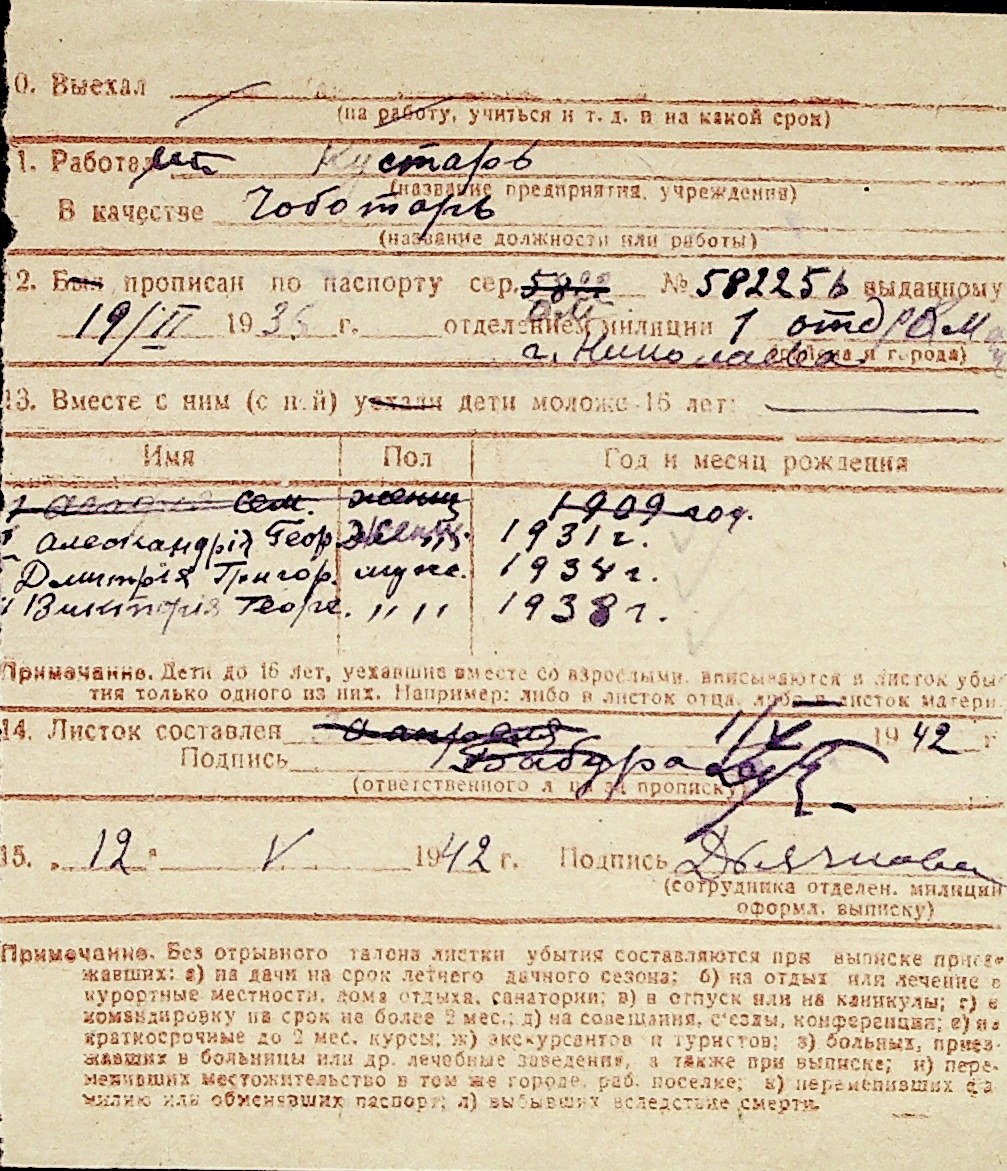 0. Выехал
(на работу, учиться и т. д. и на какой срок)
1. Работал Кустарь
(название предприятия, учреждения)
В качестве Чоботарь
(название должности или работы)
2. Был прописан по паспорту сер. № 582256 выданному
19/II 1936 г. отделением милиции 1 отд РКМ
г. Николаева (района и города)
13. Вместе с ним (с ней) уехали дети моложе 16 лет:
Имя Пол Год и месяц рождения
сем. женщ 1909 год.
Александрія Геор. женщ. 1931 г.
Дмитрія Григор. муж. 1934 г.
Викторія Георг. ,, ,, 1938 г.
Примечание. Дети до 16 лет, уехавшие вместе со взрослыми, вписываются в листок убы-
тия только одного из них. Например: либо в листок отца, либо в листок матери.
14. Листок составлен 1/V 1942 г
Подпись Бабура
(ответственного лица за прописку)
15. „12" V 1942 г. Подпись
(сотрудника отделен. милиции
оформл. выписку)
Примечание. Без отрывного талона листки убытия составляются при выписке приез-
жавших: а) на дачи на срок летнего дачного сезона; б) на отдых или лечение в
курортные местности, дома отдыха, санатории; в) в отпуск или на каникулы; г) в
командировку на срок не более 2 мес.; д) на совещания, съезды, конференции; е) на
краткосрочные до 2 мес. курсы; ж) экскурсантов и туристов; з) больных, приез-
жавших в больницы или др. лечебные заведения, а также при выписке; и) пере-
менивших местожительство в том же городе, раб. поселке; к) переменивших фа-
милию или обменявших паспорт; л) выбывших вследствие смерти.